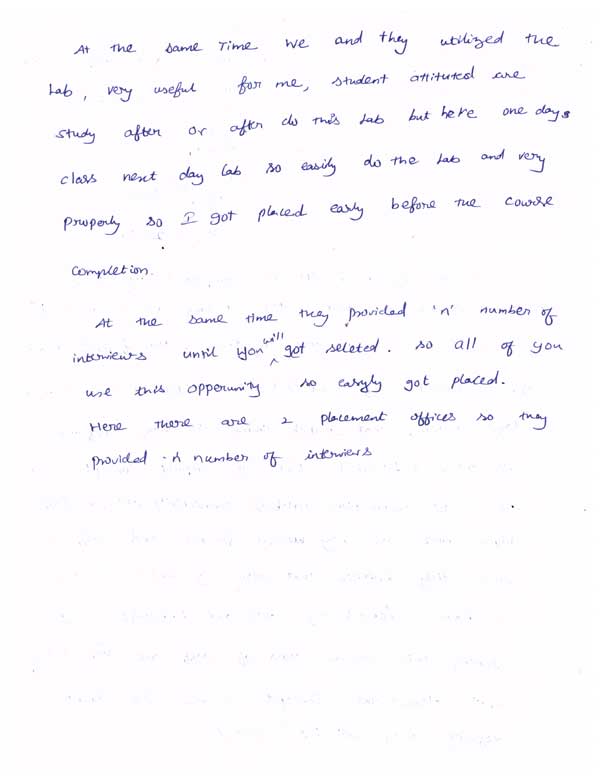 At the same Time we and they utilized the
Lab, very useful for me, student attituted are
study after or after do this Lab but here one days
class next day Lab so easily do the Lab and very
properly so I got placed early before the course
completion.
At the same time they provided 'n' number of
interviews until you will got seleted. so all of you
use this opperunity so easyly got placed.
Here There are 2 placement offices so they
provided n number of interviews